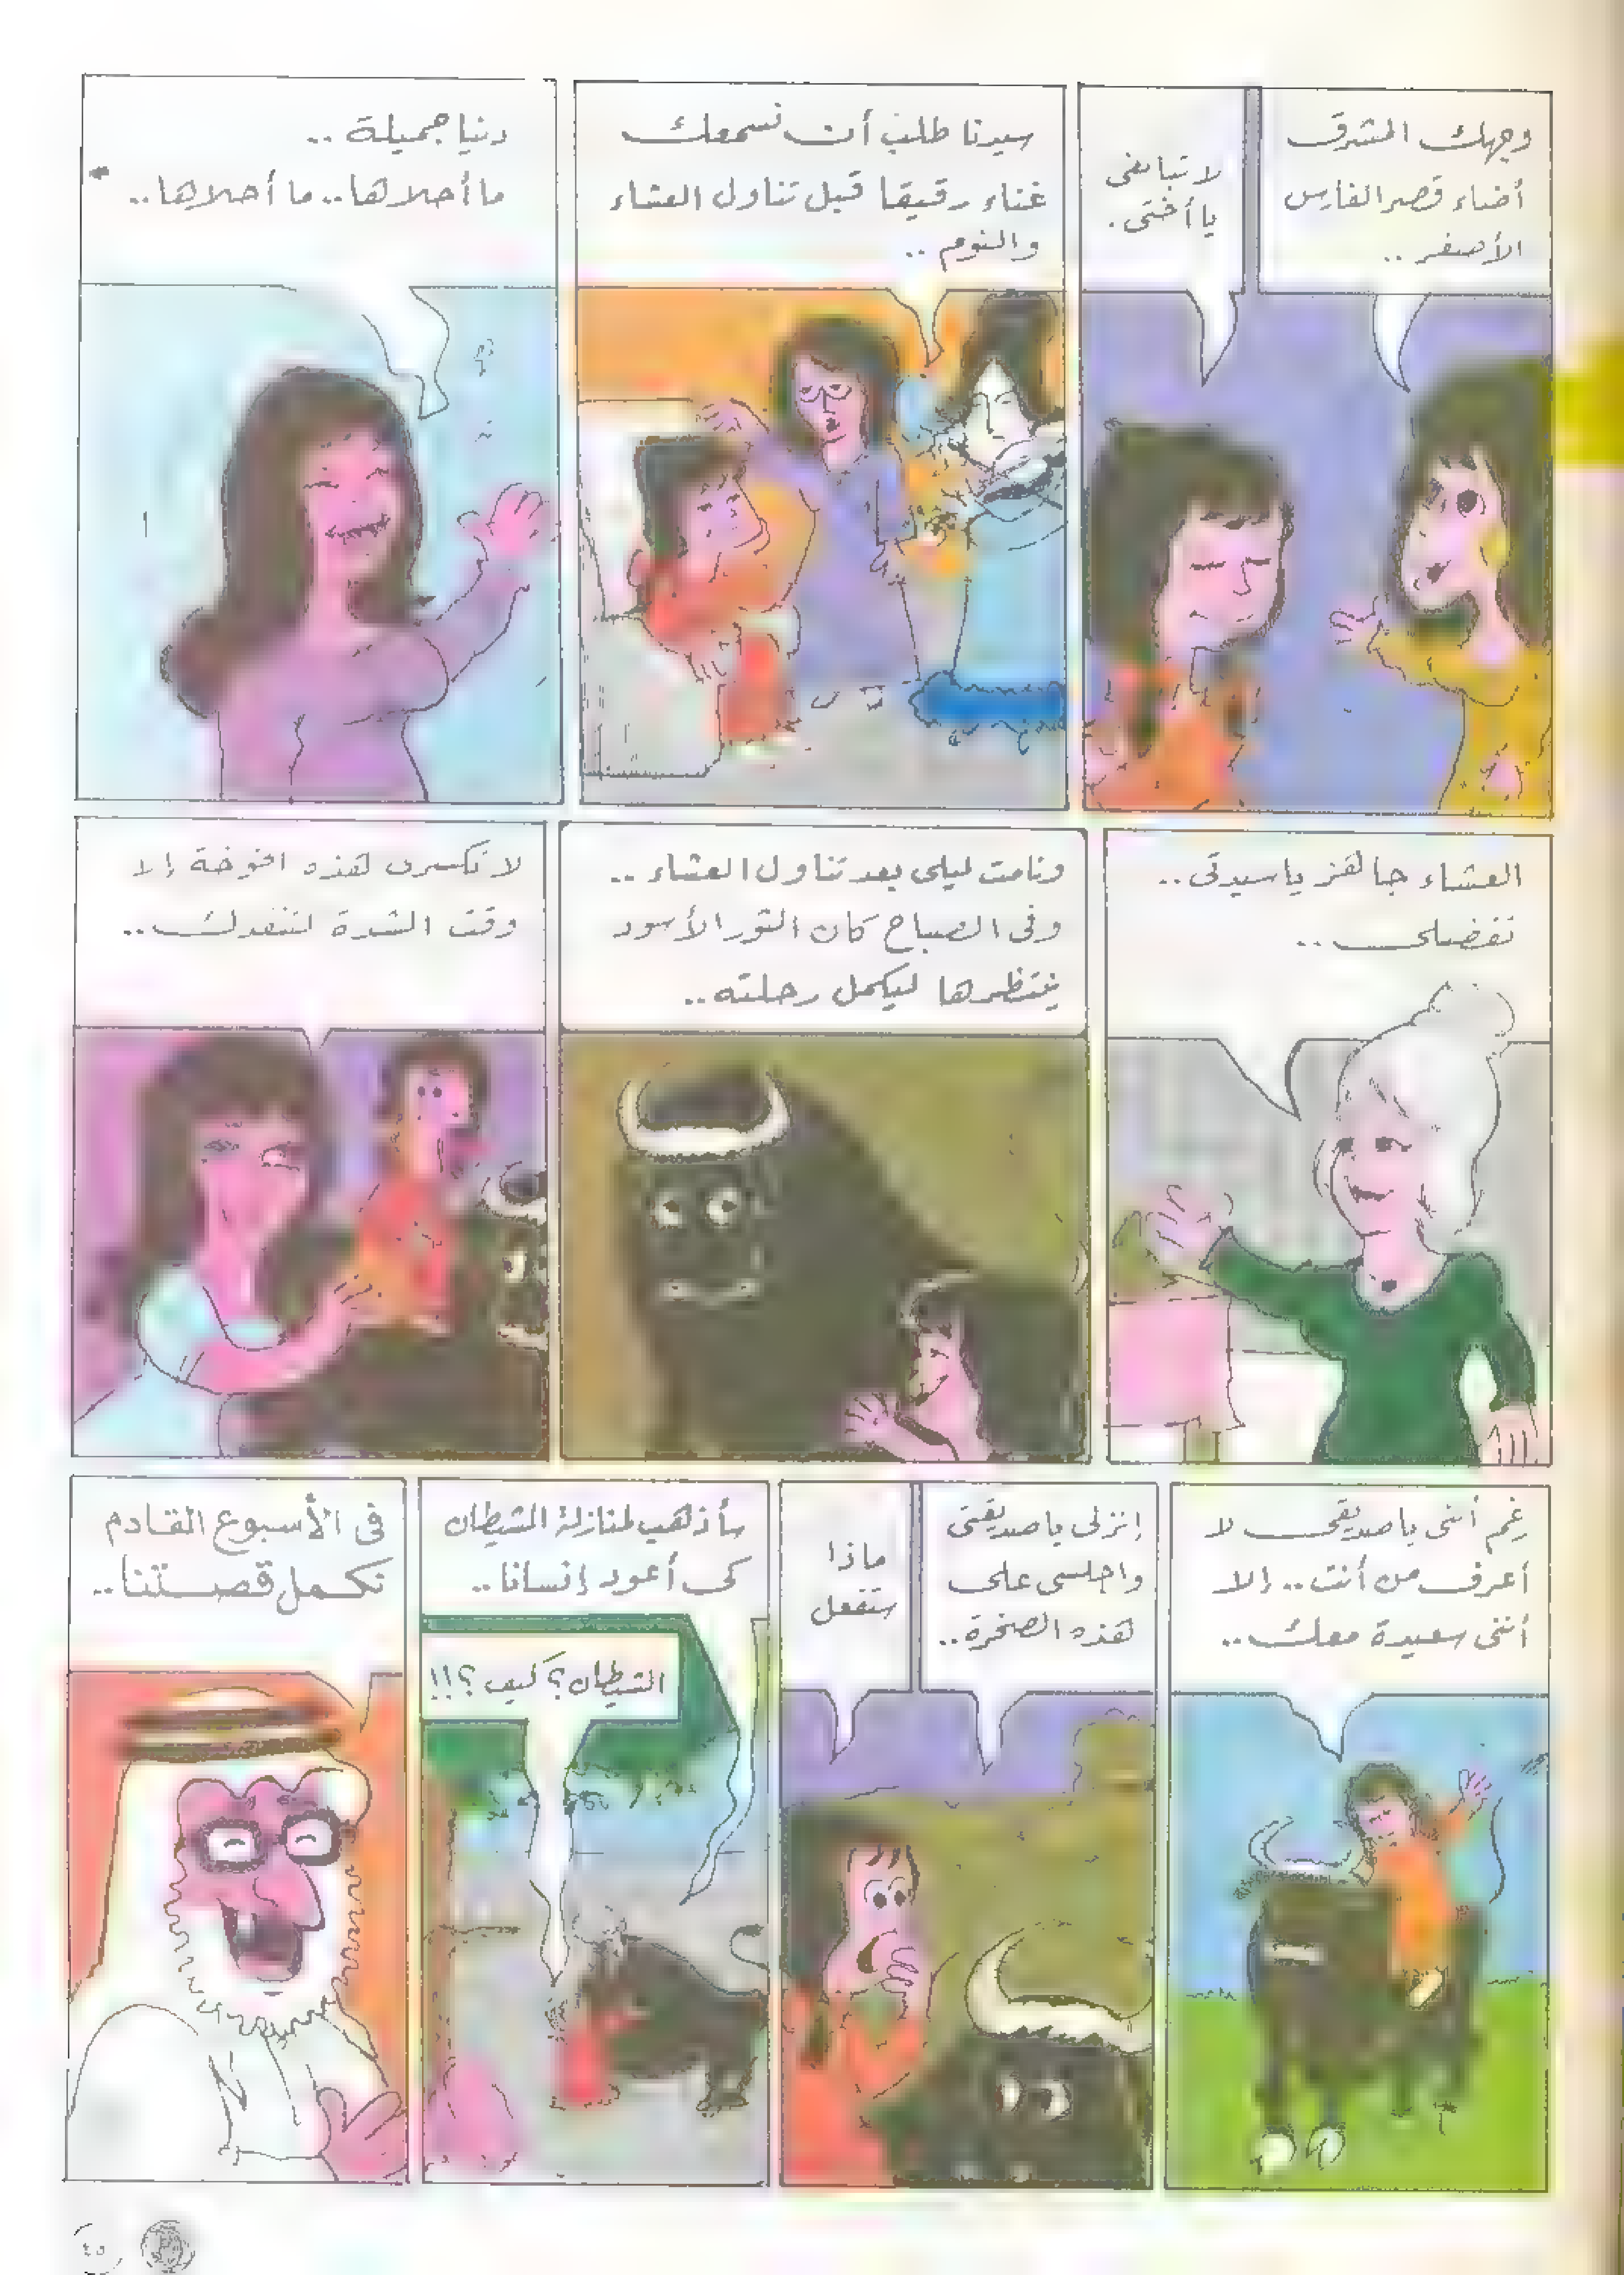 وجهك المشرق
أضاء قصر الفارس
الأصفر ..
لا تبالغى
يا أختى .
سيدنا طلب أن نسمعك
غناء رقيقا قبل تناول العشاء
والنوم ..
دنيا جميلة ..
ما أحلاها .. ما أحلاها ..
العشاء جاهز يا سيدتى ..
تفضلى ..
ونامت ليلى بعد تناول العشاء ..
وفى الصباح كان الثور الأسود
ينتظرها ليكمل رحلته ..
لا تكسرى هذه الخوخة إلا
وقت الشدة لتنقذك ..
رغم أننى يا صديقى لا
أعرف من أنت .. إلا
أننى سعيدة معك ..
إنزلى يا صديقتى
واجلسى على
هذه الصخرة ..
ماذا
ستفعل
سأذهب لمنازلة الشيطان
كى أعود إنسانا ..
الشيطان ؟ كيف ؟!!
فى الأسبوع القادم
نكمل قصتنا ..
٤٥